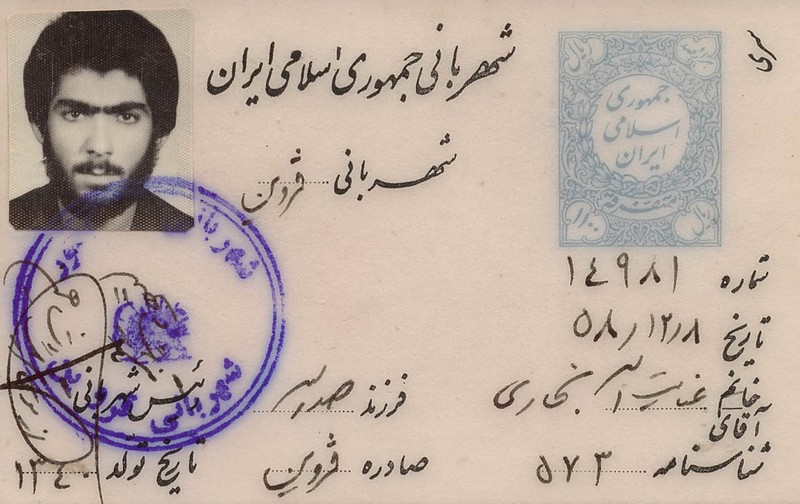 شهربانی جمهوری اسلامی ایران
شهربانی قزوین
ریال
جمهوری
اسلامی
ایران
متفرقه
۱۰۰ ریال
شماره ۱۴۹۸۱
تاریخ ۵۸/۱۲/۸
خانم
آقای عنایت اله بخاری فرزند صدراله
شناسنامه ۵۷۳ صادره قزوین تاریخ تولد ۱۳۴۰
رئیس شهربانی
شهربانی